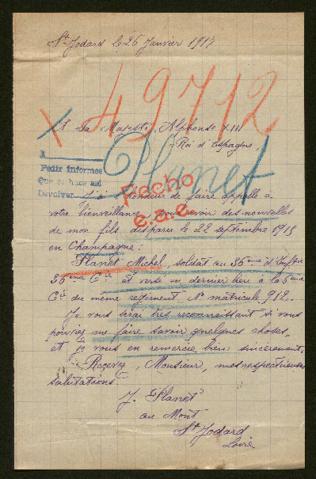 St Jodard le 26 Janvier 1917
X 49712
A Sa Majesté, Alphonse XIII
Roi d'Espagne,
Planet
A
Pedir informes
Devolver
Hecho
J'ai l'honneur de faire appelle à
votre bienveillance avoir des nouvelles
de mon fils disparu le 22 septembre 1915
en Champagne:
Planet Michel, soldat au 35me d'Inftie
35me Cie et versé en dernier lieu à la 5me
Cie du même régiment No matricule, 912.
Je vous serai très reconnaissant si vous
pouviez me faire savoir quelques choses,
et je vous en remercie bien sincèrement,
Recevez, Monsieur, mes respectueuses
salutations.
J. Planet
au Mont
St Jodard
Loire